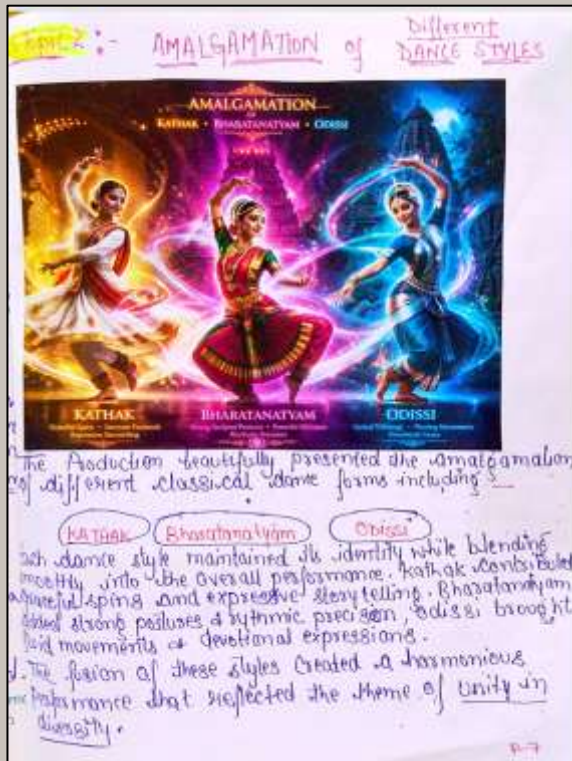 TOPIC 2 :- AMALGAMATION of Different DANCE STYLES
AMALGAMATION
KATHAK • BHARATANATYAM • ODISSI
KATHAK
BHARATANATYAM
ODISSI
The Production beautifully presented the amalgamation
of different classical dance forms including
KATHAK Bharatanatyam ODISSI
ach dance style maintained its identity while blending
moothly into the overall performance. Kathak contributed
graceful spins and expressive storytelling. Bharatanatyam
added strong postures & rythmic precison, Odissi brought
fluid movements & devotional expressions.
The fusion of these styles created a harmonious
Performance that reflected the theme of Unity in
diversity.
P-7